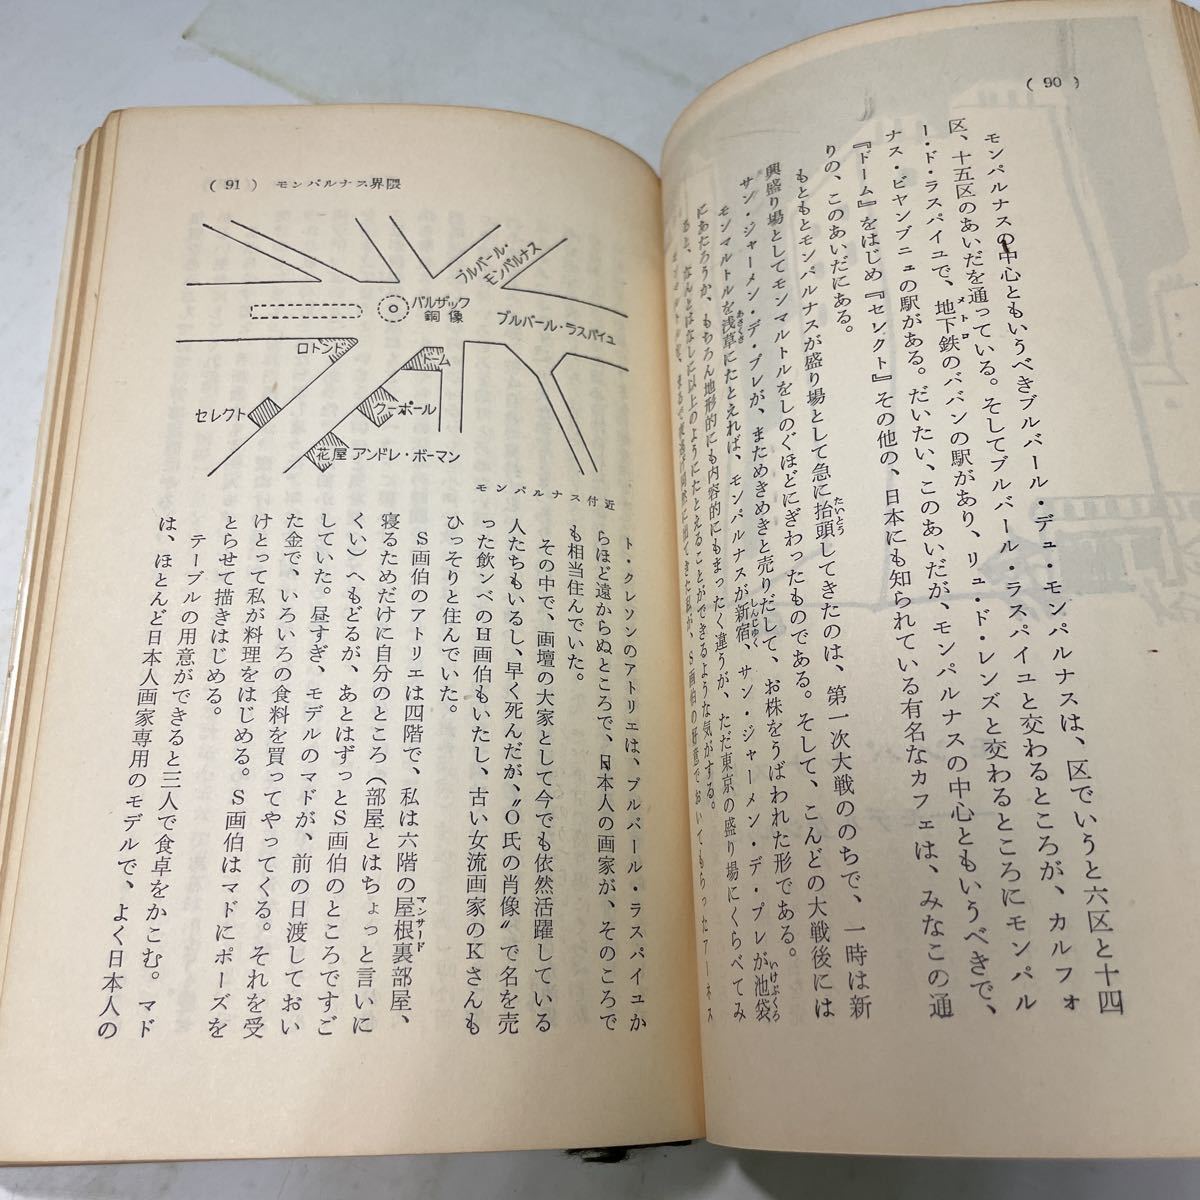 ( 90 )
モンパルナスの中心ともいうべきブルバール・デュ・モンパルナスは、区でいうと六区と十四
区、十五区のあいだを通っている。そしてブルバール・ラスパイユと交わるところが、カルフォ
ー・ド・ラスパイユで、地下鉄のババンの駅があり、リュ・ド・レンズと交わるところにモンパル
メトロ
ナス・ビヤンブニュの駅がある。だいたい、このあいだが、モンパルナスの中心ともいうべきで、
『ドーム』をはじめ『セレクト』その他の、日本にも知られている有名なカフェは、みなこの通
りの、このあいだにある。
もともとモンパルナスが盛り場として急に抬頭してきたのは、第一次大戦ののちで、一時は新
たいとう
興盛り場としてモンマルトルをしのぐほどにぎわったものである。そして、こんどの大戦後には
サン・ジャーメン・デ・プレが、まためきめきと売りだして、お株をうばわれた形である。
モンマルトルを浅草にたとえれば、モンパルナスが新宿、サン・ジャーメン・デ・プレが池袋
あさくさ
しんじゆく
いけぶくろ
にあたろうか、もちろん地形的にも内容的にもまったく違うが、ただ東京の盛り場にくらべてみ
ると、なんとはなしに以上のようにたとえることができるような気がする。
S画伯の好意でおいてもらったアーネス
( 91 ) モンパルナス界隈
ブルバール・
モンパルナス
バルザック
銅像
ブルバール・ラスパイユ
ロトンド
ドーム
セレクト
クーポール
花屋 アンドレ・ボーマン
モンパルナス付近
ト・クレソンのアトリエは、ブルバール・ラスパイユか
らほど遠からぬところで、日本人の画家が、そのころで
も相当住んでいた。
その中で、画壇の大家として今でも依然活躍している
人たちもいるし、早く死んだが、〝O氏の肖像〟で名を売
った飲ンベのH画伯もいたし、古い女流画家のKさんも
ひっそりと住んでいた。
S画伯のアトリエは四階で、私は六階の屋根裏部屋、
マンサード
寝るためだけに自分のところ（部屋とはちょっと言いに
くい）へもどるが、あとはずっとS画伯のところですご
していた。昼すぎ、モデルのマドが、前の日渡しておい
た金で、いろいろの食料を買ってやってくる。それを受
けとって私が料理をはじめる。S画伯はマドにポーズを
とらせて描きはじめる。
テーブルの用意ができると三人で食卓をかこむ。マド
は、ほとんど日本人画家専用のモデルで、よく日本人の